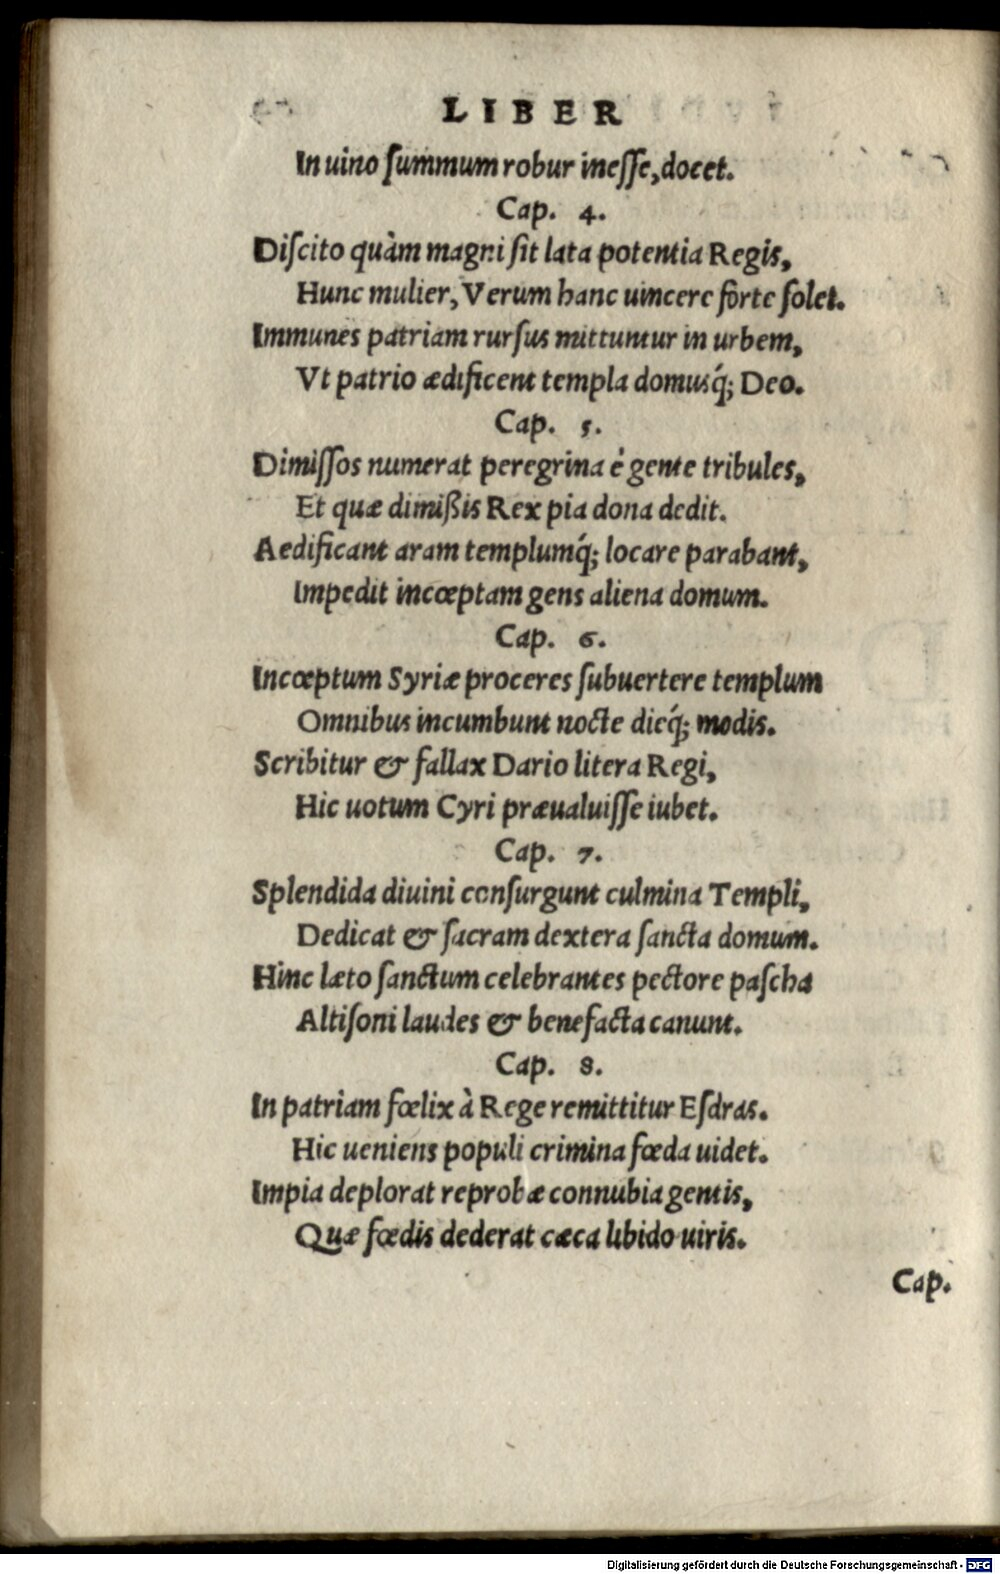 LIBER
In uino ſummum robur ineſſe, docet.
Cap. 4.
Diſcito quàm magni ſit lata potentia Regis,
Hunc mulier, Verum hanc uincere forte ſolet.
Immunes patriam rurſus mittuntur in urbem,
Vt patrio ædificent templa domusq́; Deo.
Cap. 5.
Dimiſſos numerat peregrina è gente tribules,
Et quæ dimißis Rex pia dona dedit.
Aedificant aram templumq́; locare parabant,
Impedit incœptam gens aliena domum.
Cap. 6.
Incœptum Syriæ proceres ſubuertere templum
Omnibus incumbunt nocte dieq́; modis.
Scribitur & fallax Dario litera Regi,
Hic uotum Cyri præualuiſſe iubet.
Cap. 7.
Splendida diuini conſurgunt culmina Templi,
Dedicat & ſacram dextera ſancta domum.
Hinc læto ſanctum celebrantes pectore paſcha
Altiſoni laudes & benefacta canunt.
Cap. 8.
In patriam fœlix à Rege remittitur Eſdras.
Hic ueniens populi crimina fœda uidet.
Impia deplorat reprobæ connubia gentis,
Quæ fœdis dederat cæca libido uiris.
Cap.
Digitalisierung gefördert durch die Deutsche Forschungsgemeinschaft - DFG